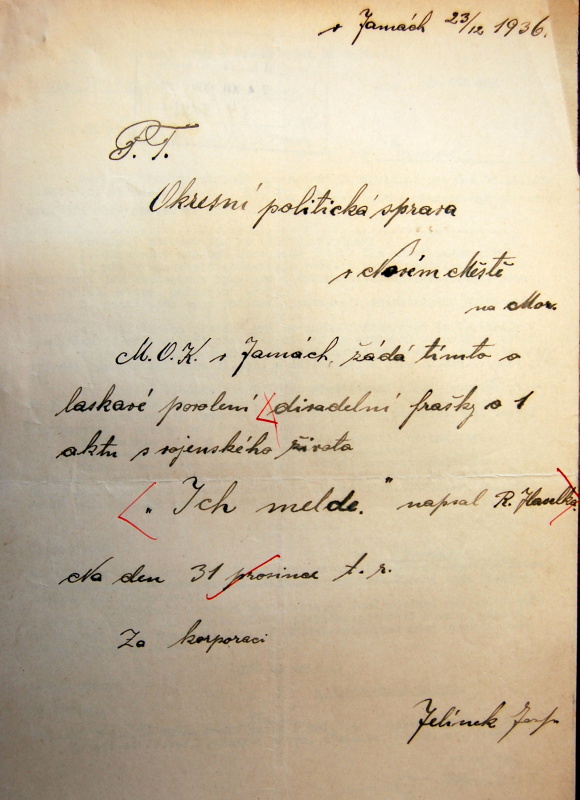 v Jamách 23/12 1936.
P. T.
Okresní politická sprava
v Novém Městě
na Mor.
M. O. K. v Jamách, žádá tímto o
laskavé povolení divadelní frašky o 1
aktu s vojenského života
„Ich melde." napsal R. Hanlka
Na den 31 prosince t. r.
Za korporaci
Jelínek